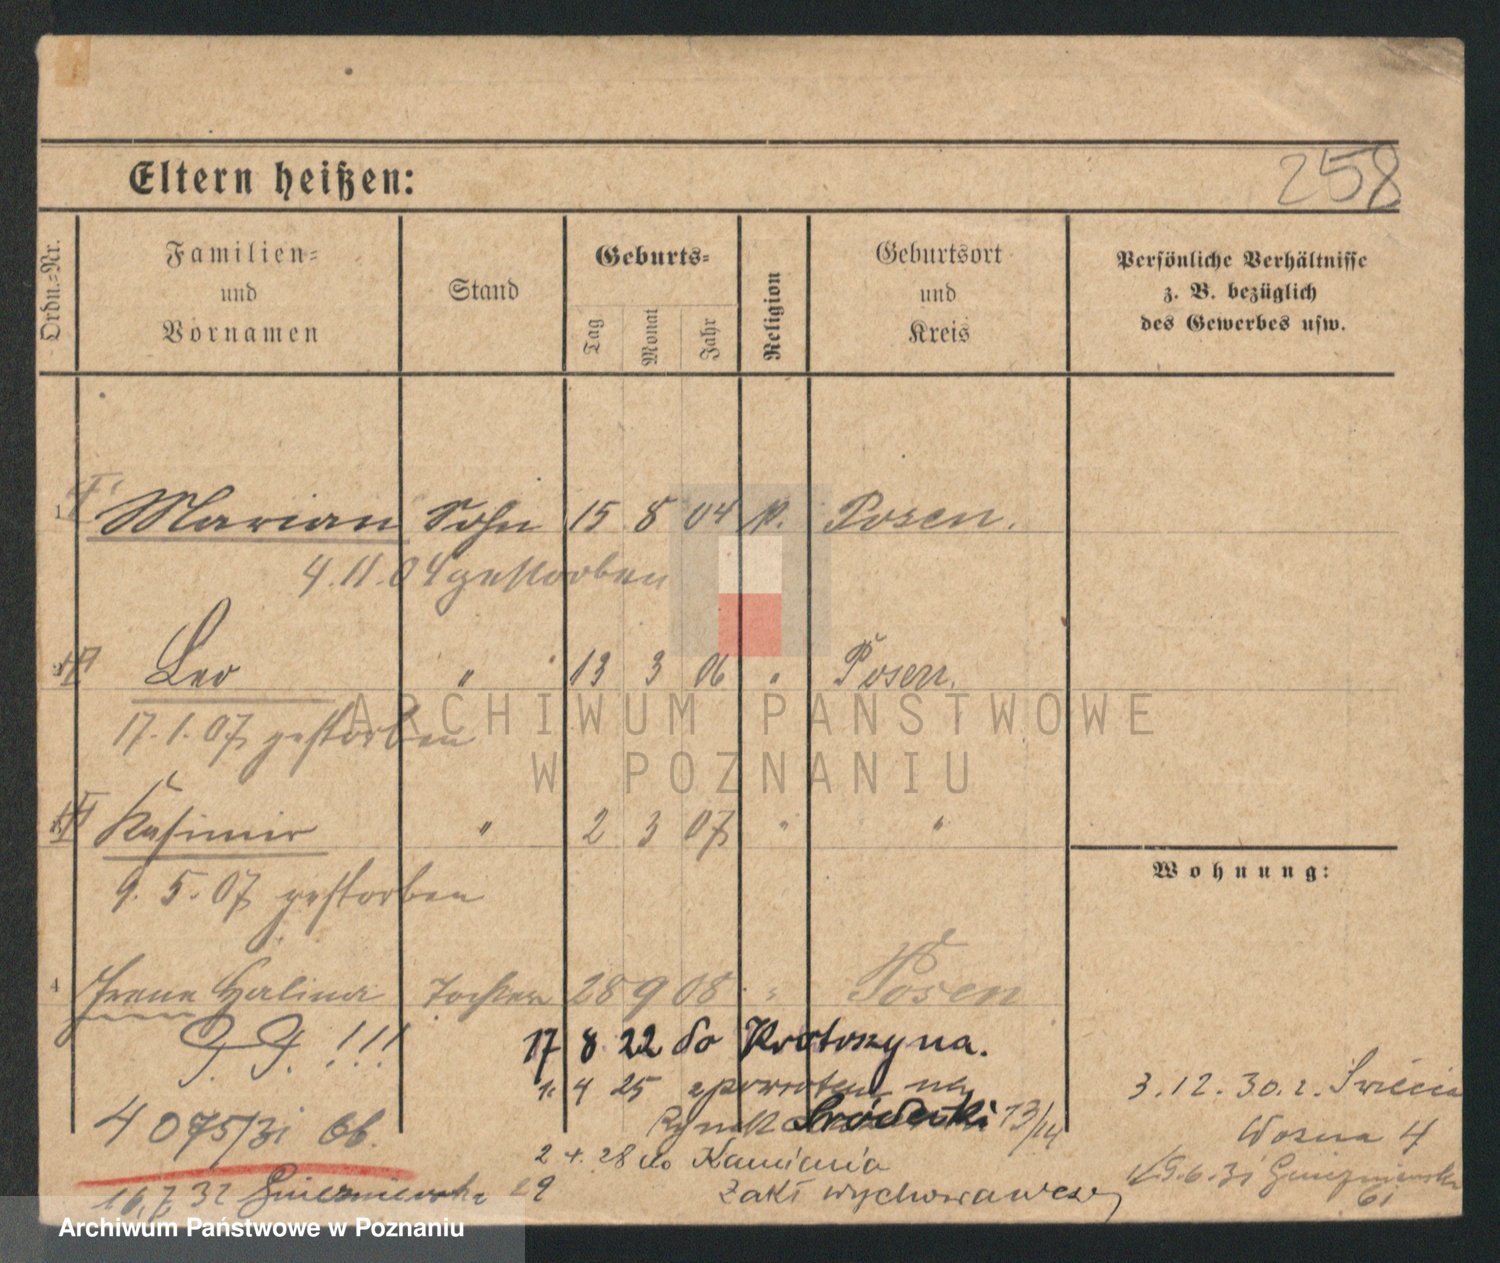 258
Eltern heißen:
Ordn.=Nr.
Familien=
und
Vornamen
Stand
Geburts=
Tag
Monat
Jahr
Religion
Geburtsort
und
Kreis
Persönliche Verhältnisse
z. B. bezüglich
des Gewerbes usw.
1 Marian Sohn 15 8 04 k. Posen.
4.11.04 gestorben
Leo " 13 3 06 " Posen.
17.1.07 gestorben
Kasimir " 2 3 07 " "
9.5.07 gestorben
Wohnung:
4 Irene Halina Tochter 28 9 08 " Posen
!!!
17 8 22 do Krotoszyna.
1. 4 25 zpowrotem na
Rynek Śródecki 13/14
4075/31
2 4. 28 do Kamienia
Zakł wychowawczy
16.7.32 Gnieźnieńska 29
3.12.30. z. Świecia
Wozna 4
15.6.31 Gnieźnieńska
61
ARCHIWUM PAŃSTWOWE
W POZNANIU
Archiwum Państwowe w Poznaniu